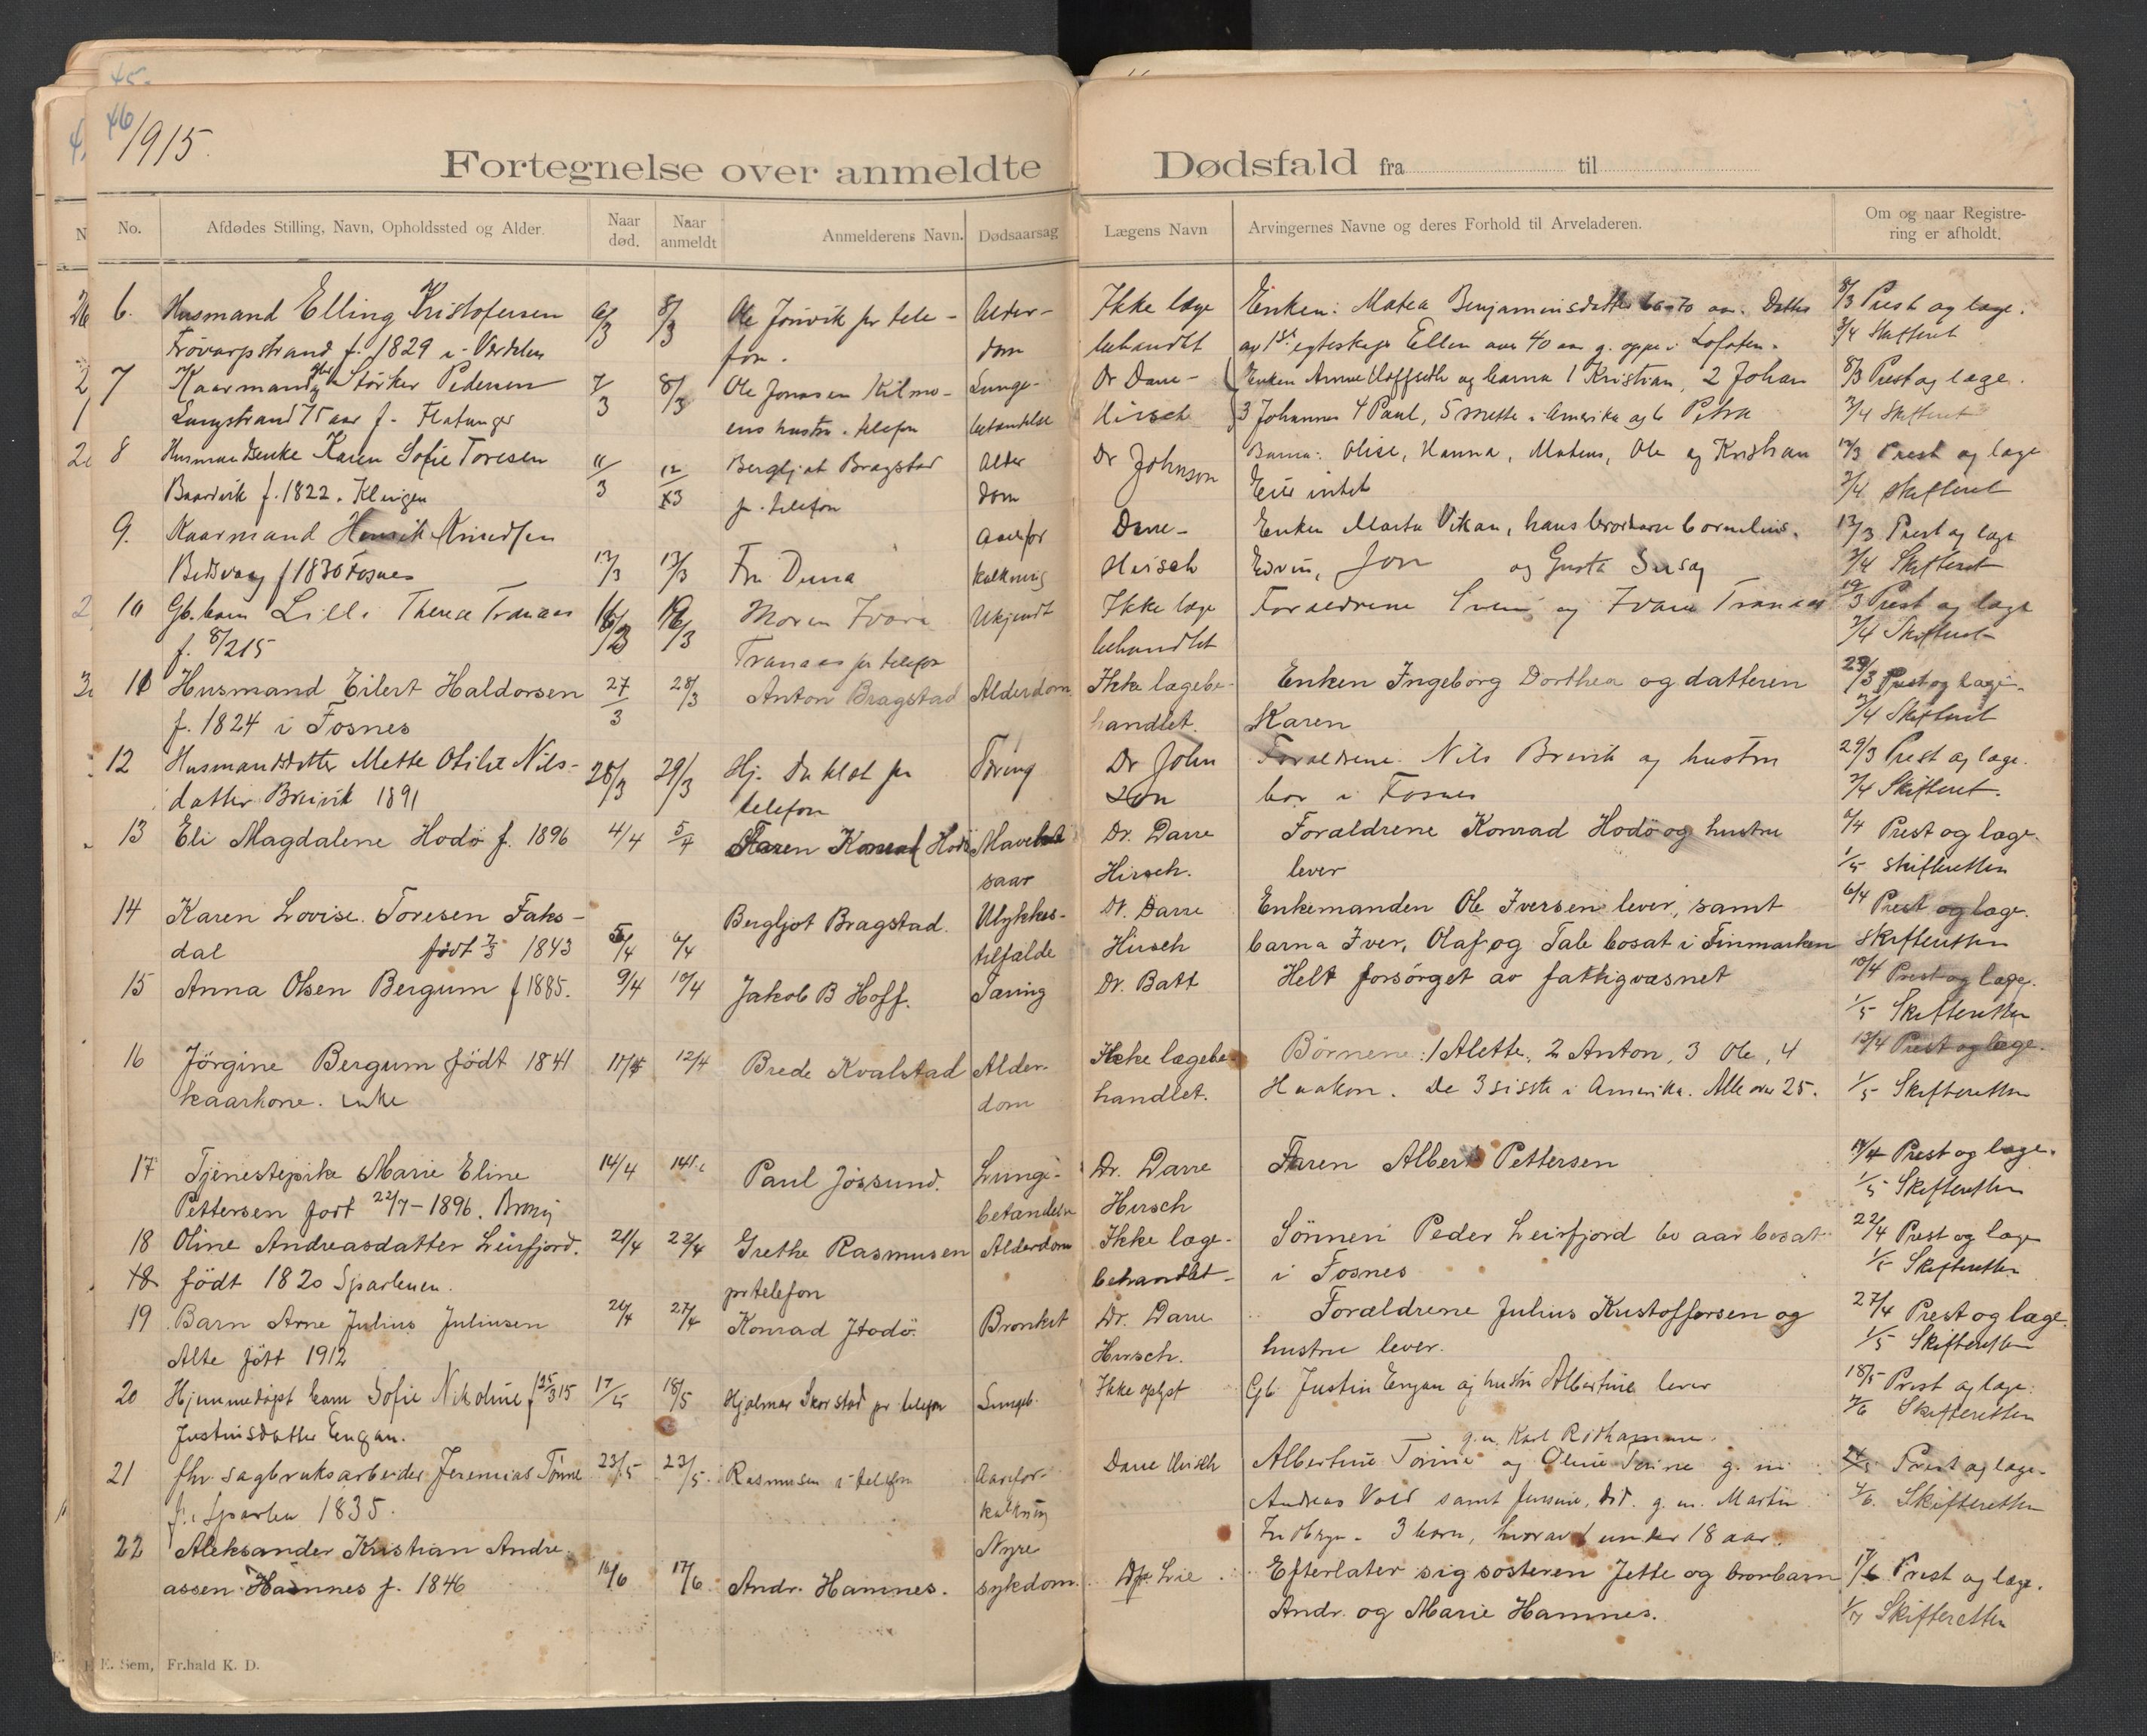 46
1915.
Fortegnelse over anmeldte Dødsfald fra til
No. Afdødes Stilling, Navn, Opholdssted og Alder. Naar død. Naar anmeldt Anmelderens Navn. Dødsaarsag Lægens Navn Arvingernes Navne og deres Forhold til Arveladeren. Om og naar Registrering er afholdt.
6. Husmand Elling Kristofersen 6/3 8/3 Ole Jörivik pr tele- Alder- Ikke læge Enken: Matea Benjaminsdatter 60-70 aar. Datter 8/3 Prest og læge.
strand f. 1829 i Værdalen fon. dom behandlet av 1ste egteskap Ellen over 40 aar g. oppe i Lofoten. 3/4 Skifteret
7 Kaarmand Störker Pedersen 7/3 8/3 Ole Jonasen Kilmo- Lunge- Dr Darre- Enken Anne Kloffseth og barna 1 Kristian, 2 Johan 8/3 Prest og læge.
Langstrand 75 aar f. Flatanger ens hustru. telefon betændelse Hirsch 3 Johannes 4 Paul, 5 Mette i Amerika og 6 Petra 3/4 Skifteret
8 Husmandsenke Karen Sofie Toresen 11/3 12/3 Bergljot Bragstad Alder Dr Johnson Barna: Olise, Hanna, Mateus, Ole og Kristian 12/3 Prest og læge
Baardvik f. 1822. Klingen pr. telefon dom Eier intet 3/4 skifteret
9. Kaarmand Henrik Knudsen Aarefor Darre- Enken Marta Vikan, hans brorbarn Cornelius, 13/3 Prest og læge
f 1830 Fosnes 13/3 13/3 Fru Duna kalkning Hirsch Edvin, Jon og Gusta 3/4 Skifteret
10 Gb. barn Lilli Therea Tranaas 16/3 19/3 Moren Ivara Ukjendt Ikke læge Foraldrene Svein og Ivara Tranaas 19/3 Prest og læge
f. 8/2 15 Tranaas pr telefon behandlet 3/4 Skifteret
11 Husmand Eilert Haldorsen 27/3 28/3 Anton Bragstad Alderdom Ikke lægebe- Enken Ingeborg Dorthea og datteren 29/3 Prest og læge.
f. 1824 i Fosnes handlet. Karen 3/4 Skifteret
12 Husmandsdatter Mette Otilie Nils- 28/3 29/3 Hj. Duklæt pr Tæring Dr John Foraldrene Nils Breivik og hustru 29/3 Prest og læge.
datter Breivik 1891 telefon son bor i Fosnes 3/4 Skifteret.
13 Eli Magdalene Hodö f. 1896 4/4 5/4 Faren Konrad Hodö Mave Dr. Darre Foraldrene Konrad Hodö og hustru 6/4 Prest og læge.
saar Hirsch. lever 1/5 skifteretten
14 Karen Lovise Toresen Faks- Bergljot Bragstad. Ulykkes- Dr. Darre Enkemanden Ole Iversen lever, samt 6/4 Prest og læge.
dal födt 7/3 1843 5/4 6/4 tilfælde Hirsch barna Iver, Olaf og Tale bosat i Finmarken skifteretten
15 Anna Olsen Bergum f 1885. 9/4 10/4 Jakob B Hoff. Tæring Dr. Batt Helt forsörget av fattigvæsnet 10/4 Prest og læge.
1/5 Skifteretten
16 Jörgine Bergum födt 1841 11/4 12/4 Brede Kvalstad Alder- Ikke lægebe Börnene: 1 Alette, 2 Anton, 3 Ole, 4 13/4 Prest og læge.
kaarkone. enke dom handlet. Haakon. De 3 siste i Amerika. Alle over 25. 1/5 Skifteretten
17 Tjenestepike Marie Eline 14/4 14/4 Paul Jössund. Lunge- Dr. Darre Faren Albert Pettersen 14/4 Prest og læge.
Pettersen födt 22/7-1896. betændelse Hirsch 1/5 Skifteretten
18 Oline Andreasdatter Leirfjord. 21/4 22/4 Grethe Rasmusen Alderdom Ikke læge- Sönnen Peder Leirfjord 60 aar bosat 22/4 Prest og læge
18 födt 1820 Sparbuen. pr telefon behandlet- i Fosnes 1/5 Skifteretten
19 Barn Arne Julius Juliusen 26/4 27/4 Konrad Hodö Bronkit Dr. Darre Forældrene Julius Kristoffersen og 27/4 Prest og læge.
Alte födt 1912 Hirsch. hustru lever. 1/5 Skifteretten
20 Hjemmedöpt barn Sofie Nikoline f 25/3 15 17/5 18/5 Hjalmar Skorstad pr telefon Lungeb. Ikke oplyst Gb. Justin Engan og hustru Albertine lever 18/5 Prest og læge.
Justinsdatter Engan. 2/6 Skifteretten
g.m. Karl Rödhammer.
21 fhv. sagbruksarbeider Jeremias Tönne 23/5 23/5. Rasmusen i telefon Aarefor- Darre Hirsch Albertine Torine og Oline Trine g. m. 24/5 Prest og læge-
f. i Sparbu 1835. kalkning Andreas Vold samt Jensine, död. g. m. Martin 2/6. Skifteretten
3 barn, hvorav 1 under 18 aar.
22 Aleksander Kristian Andre- Nyre
assen Hamnes f. 1846 16/6 17/6 Andr. Hamnes. sykdom. Dr. Lie Efterlater sig sösteren Jette og brorbarn 17/6 Prest og læge.
Andr. og Marie Hamnes. 1/7 Skifteretten
E. Sem, Fr.hald K. D.